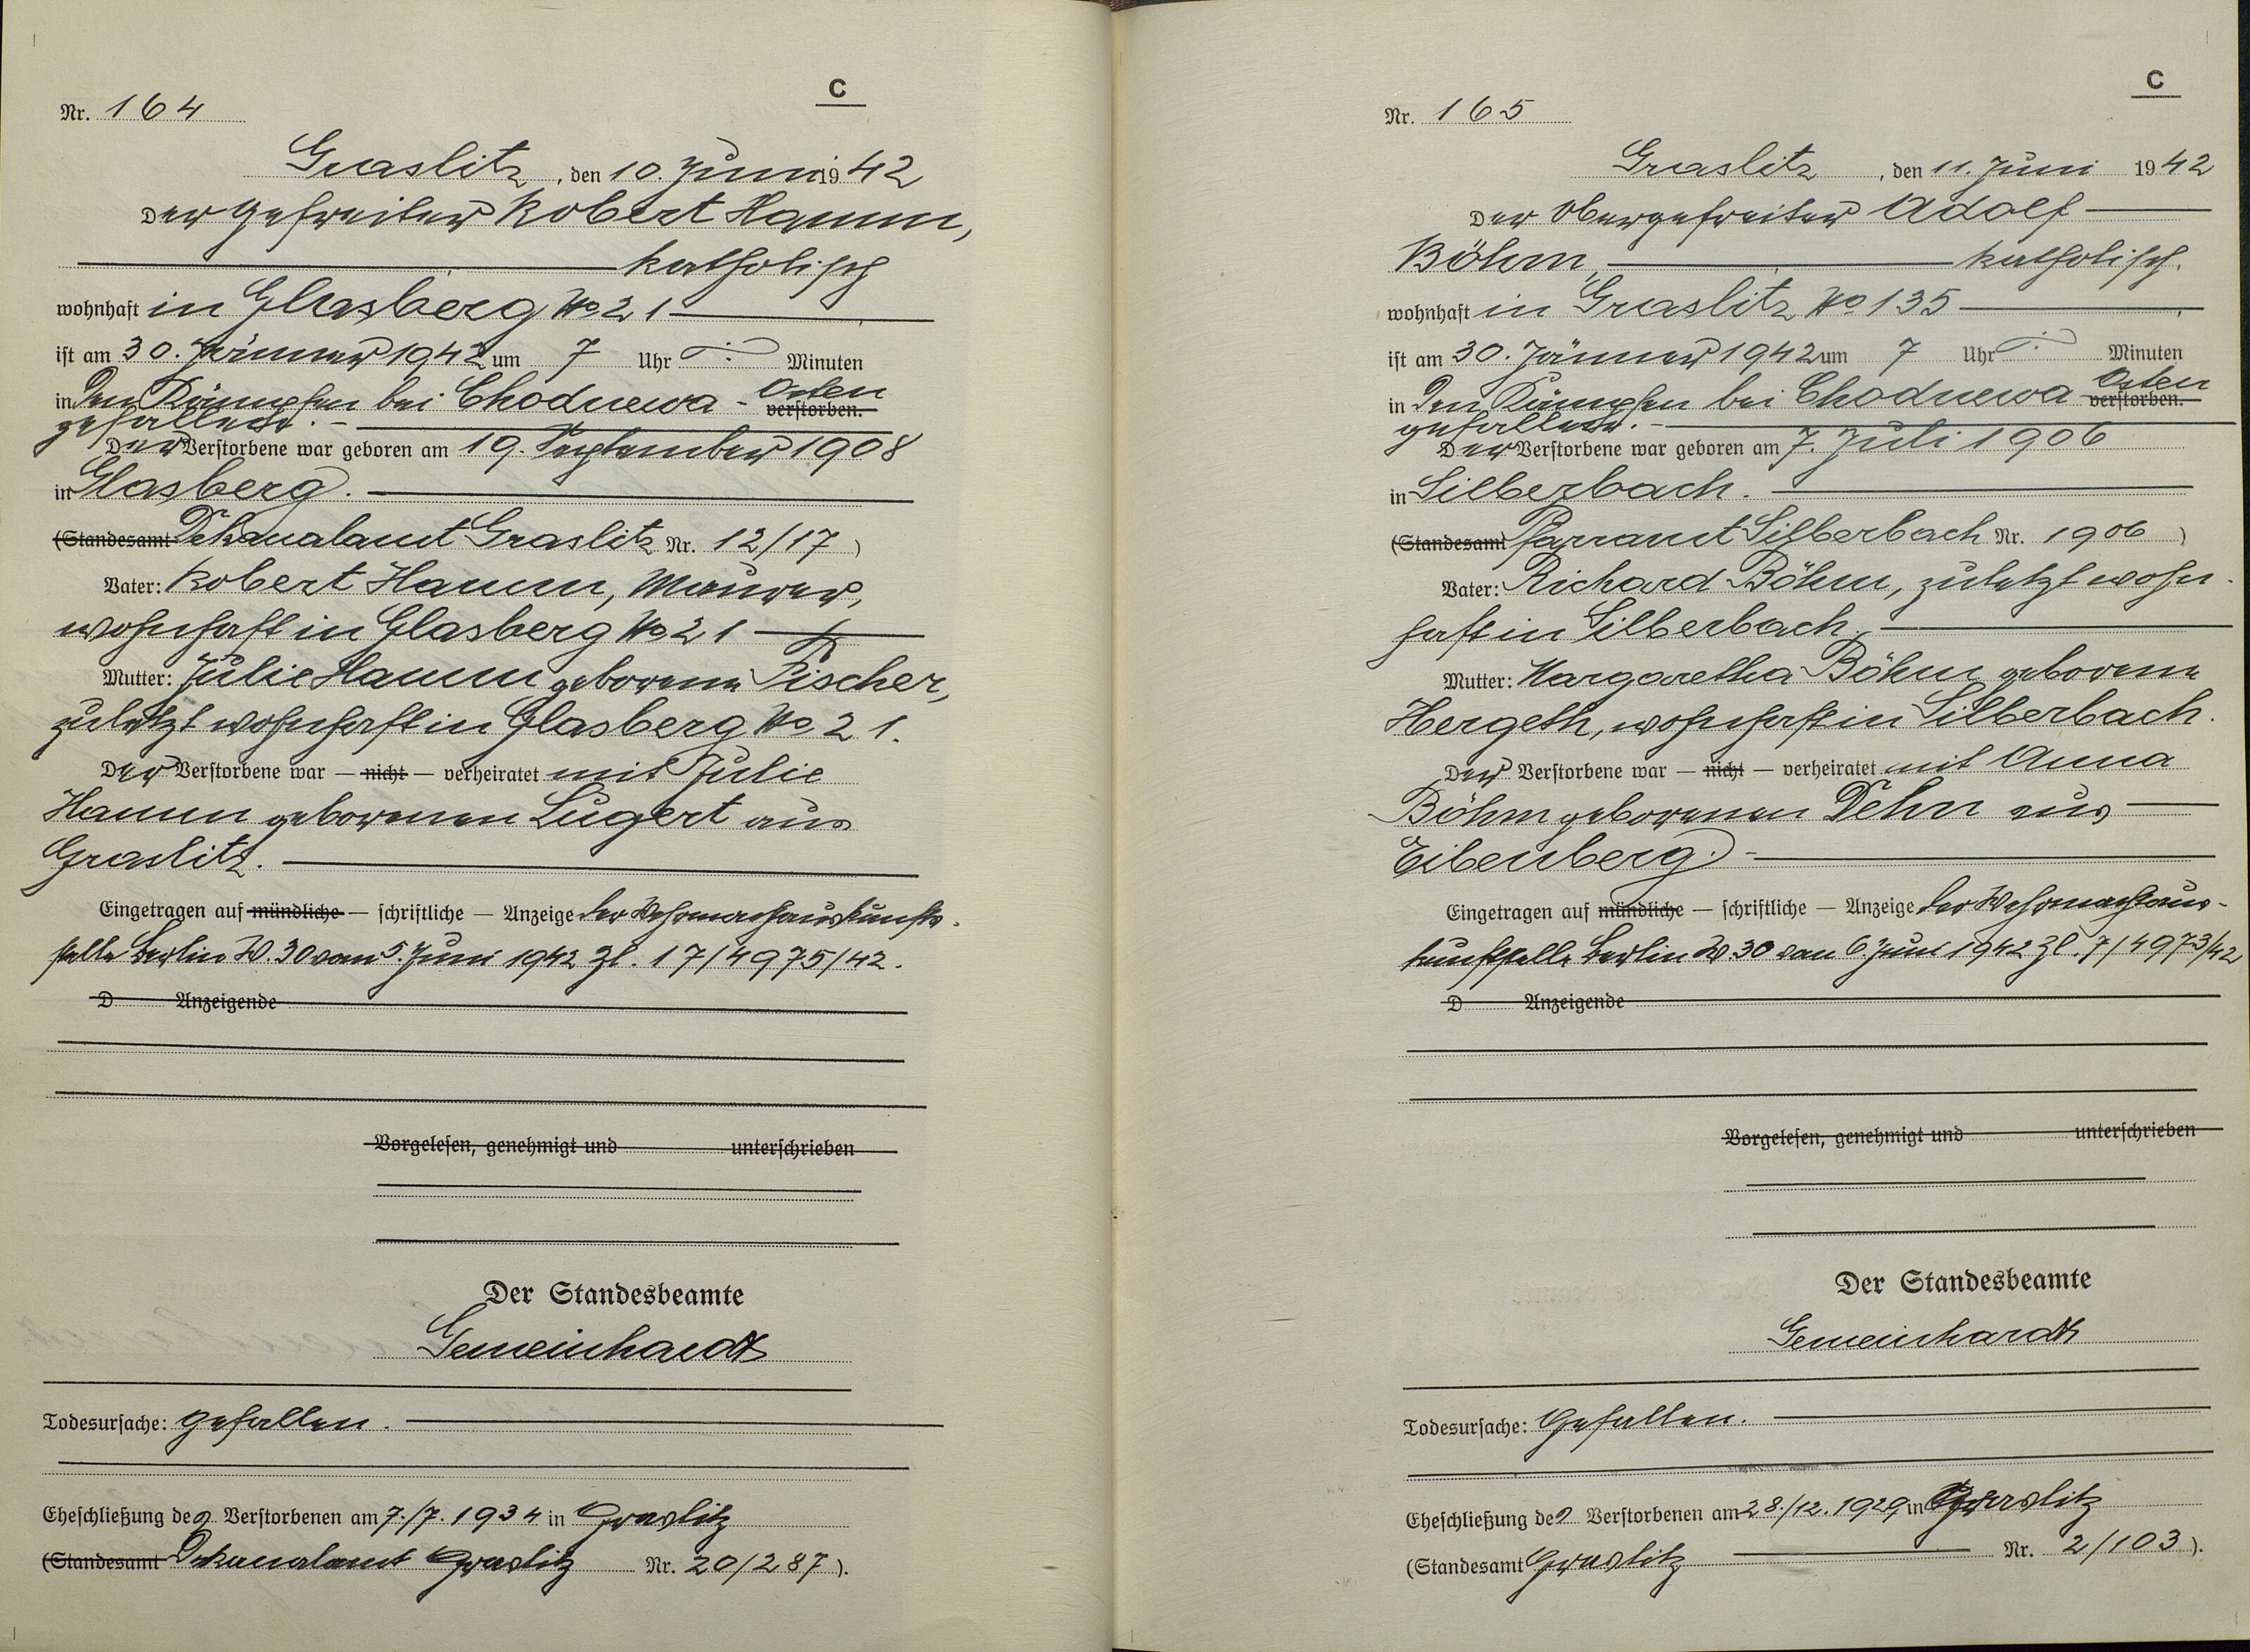 C
Nr. 164
Graslitz, den 10. Juni 1942
Der Gefreiter Robert Hamm,
katholisch
wohnhaft in Glasberg No 21
ist am 30. Jänner 1942 um 7 Uhr Minuten
in den Kämpfen bei Chodnewa - Osten verstorben.
gefallen. -
Der Verstorbene war geboren am 19. September 1908
in Glasberg.
(Standesamt Dekanalamt Graslitz Nr. 12/17)
Vater: Robert Hamm, Maurer,
wohnhaft in Glasberg No 21
Mutter: Julie Hamm geborene Fischer,
zuletzt wohnhaft in Glasberg No 21.
Der Verstorbene war — nicht — verheiratet mit Julie
Hamm geborenen Lugert aus
Graslitz.
Eingetragen auf mündliche — schriftliche — Anzeige der Wehrmachtauskunft-
stelle Berlin W. 30 vom 5. Juni 1942 Zl. 17/4975/42.
D Anzeigende
Vorgelesen, genehmigt und unterschrieben
Der Standesbeamte
Gemeinhardt
Todesursache: gefallen.
Eheschließung des Verstorbenen am 7./7. 1934 in Graslitz
(Standesamt Dekanalamt Graslitz Nr. 20/287).
C
Nr. 165
Graslitz, den 11. Juni 1942
Der Obergefreiter Adolf
Böhm, katholisch.
wohnhaft in Graslitz No 135
ist am 30. Jänner 1942 um 7 Uhr Minuten
in den Kämpfen bei Chodnewa Osten verstorben.
gefallen. -
Der Verstorbene war geboren am 7. Juli 1906
in Silberbach.
(Standesamt Pfarramt Silberbach Nr. 1906)
Vater: Richard Böhm, zuletzt wohn-
haft in Silberbach.
Mutter: Margaretha Böhm geborene
Hergeth, wohnhaft in Silberbach.
Der Verstorbene war — nicht — verheiratet mit Anna
Böhm geborenen Dehn aus
Eibenberg. -
Eingetragen auf mündliche — schriftliche — Anzeige der Wehrmachtaus-
kunftstelle Berlin W. 30 vom 6. Juni 1942 Zl. 7/4973/42
D Anzeigende
Vorgelesen, genehmigt und unterschrieben
Der Standesbeamte
Gemeinhardt
Todesursache: Gefallen.
Eheschließung des Verstorbenen am 28./12. 1929 in Graslitz
(Standesamt Graslitz Nr. 2/103).